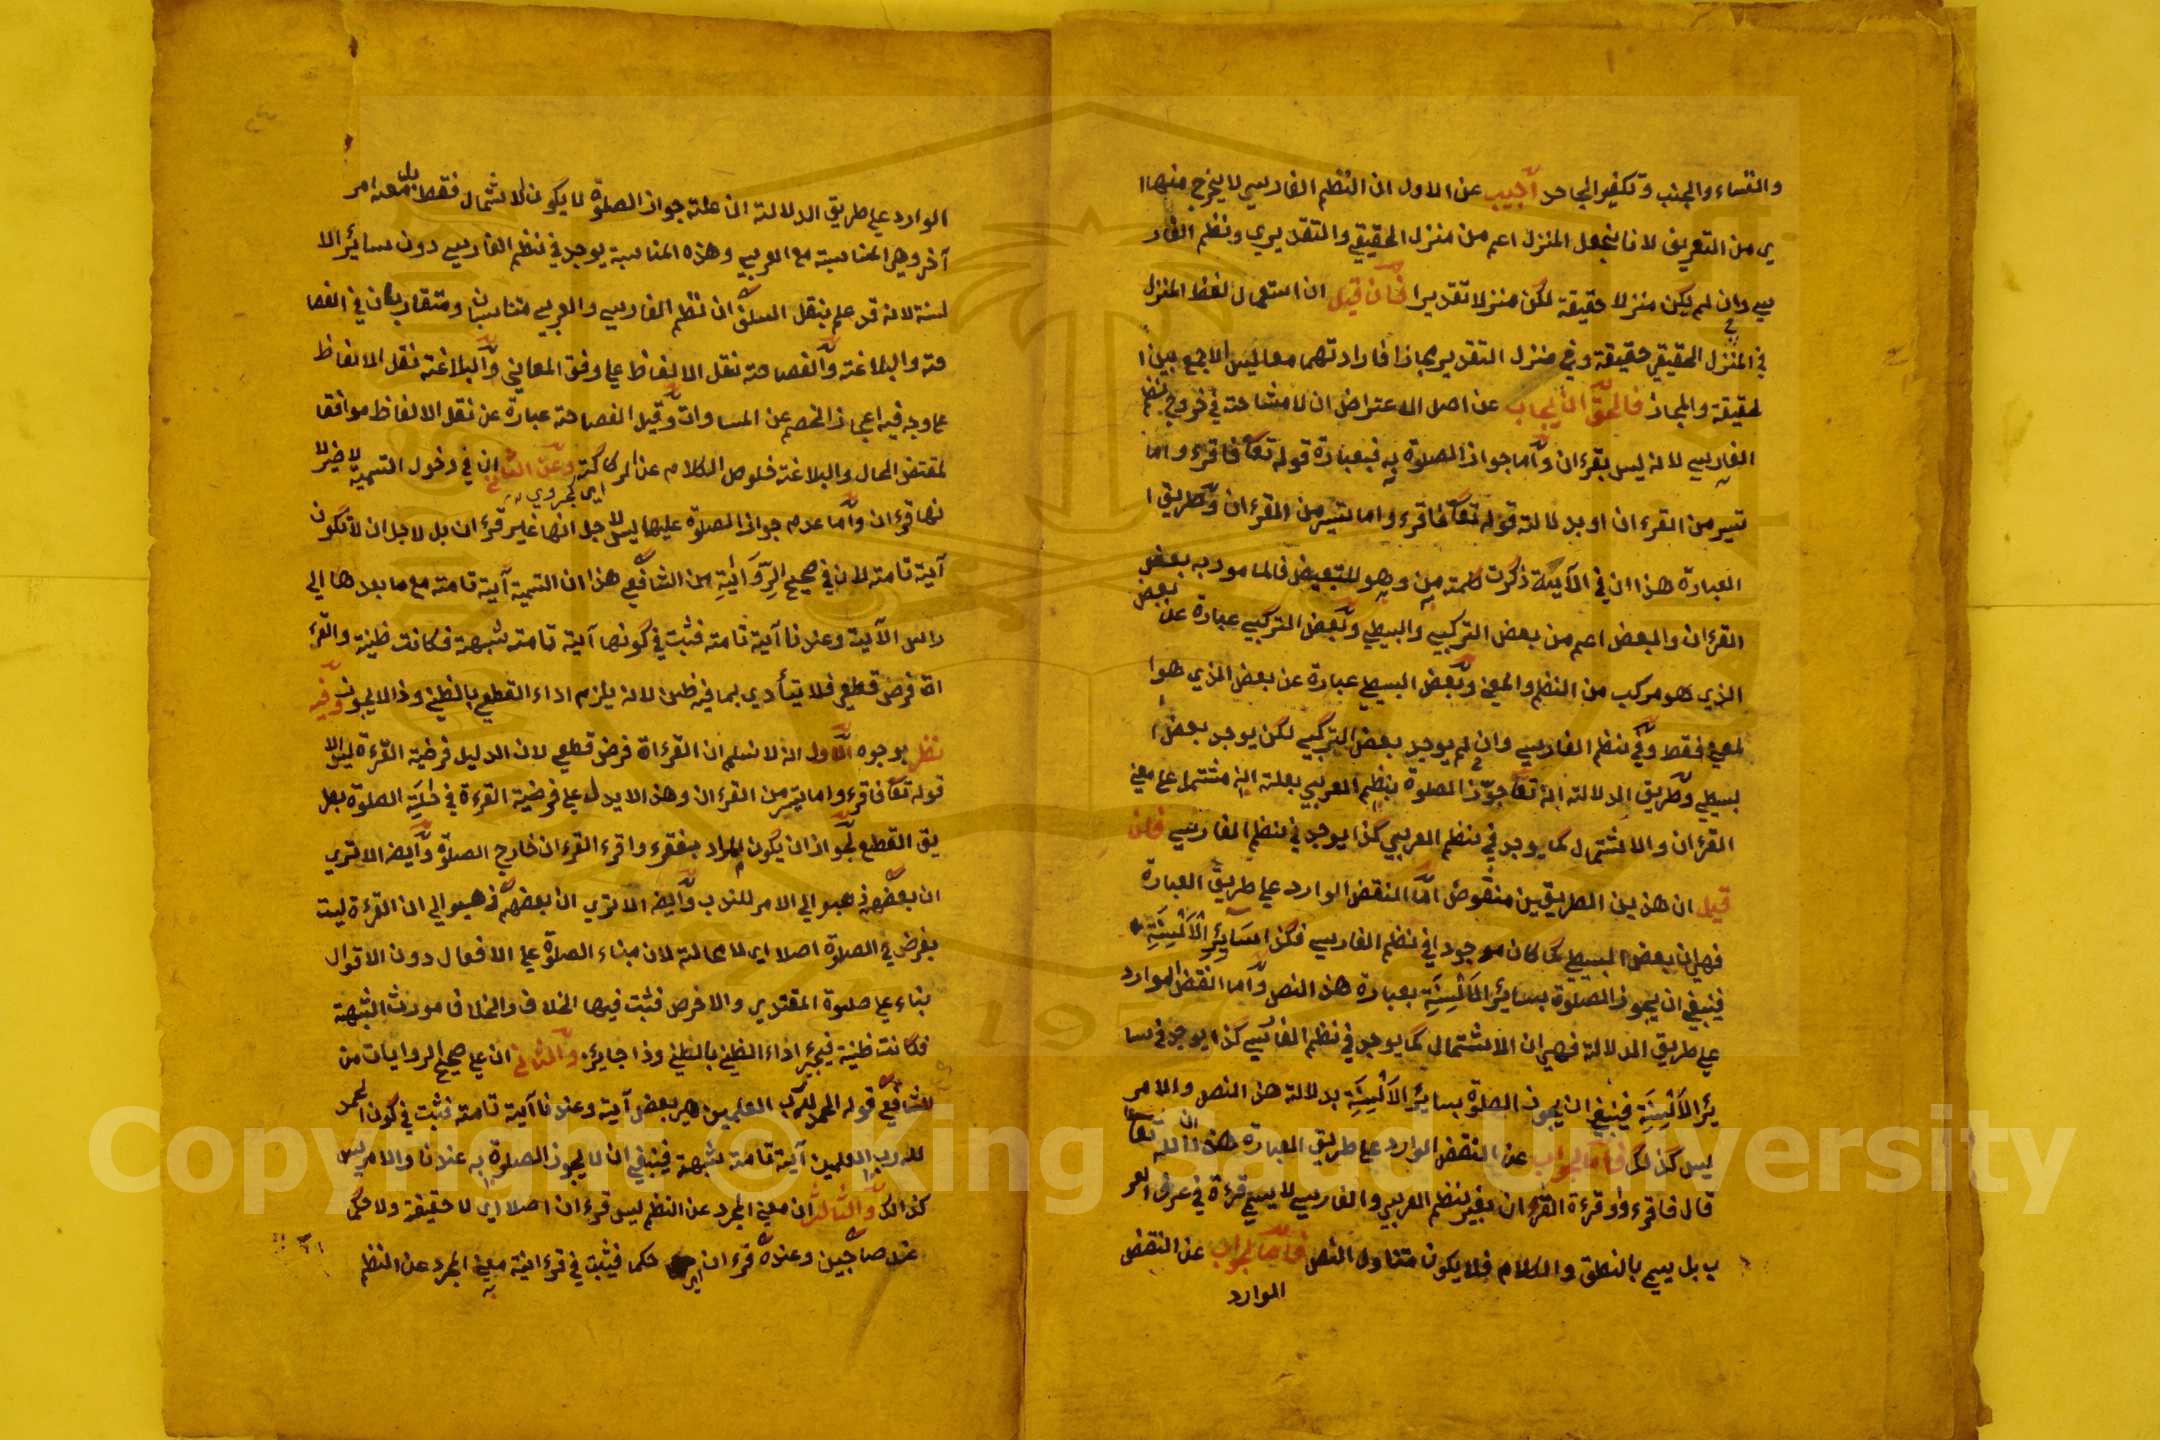 والنفساء والجنب وتكفير الجاحد اجيب عن الاول ان النظم الفارسي لا يخرج منها
ي من التعريف لانا نجعل المنزل اعم من منزل الحقيقي والتقديري ونظم الفار
سي وان لم يكن منزلا حقيقة لكن منزلا تقديرا فان قيل ان استعمال لفظ المنزل
في المنزل الحقيقي حقيقة وفي منزل التقديري مجاز فارادتهما معا ليس الا جمع بين ا
لحقيقة والمجاز فالحق ان يجاب عن اصل الاعتراض ان لا مشاحة في خروج نظم
الفارسي لانه ليس بقرءان واما جواز الصلوة به فبعبارة قوله تعا فاقرءوا ما
تيسر من القرءان او بدلالة قوله تعا فاقرءوا ما تيسر من القرءان وطريق ا
لعبارة هذا ان في الآية ذكرت كلمة من وهو للتبعيض فالمامور به بعض
القرءان والبعض اعم من بعض التركيبي والبسيطي وبعض التركيبي عبارة عن بعض
الذي هو مركب من النظم والمعنى وبعض البسيطي عبارة عن بعض الذي هو ا
لمعنى فقط وفي نظم الفارسي وان لم يوجد بعض التركيبي لكن يوجد بعض ا
لبسيطي وطريق الدلالة انه تعا جوز الصلوة بنظم العربي بعلة انه مشتمل على معنى
القرءان والاشتمال كما يوجد في نظم العربي كذا يوجد في نظم الفارسي فان
قيل ان هذين الطريقين منقوض اما النقض الوارد على طريق العبارة
فهو ان بعض البسيطي كما كان موجودا في نظم الفارسي فكذا سائر الالسنة
فينبغي ان يجوز الصلوة بسائر الالسنة بعبارة هذا النص واما النقض الوارد
على طريق الدلالة فهو ان الاشتمال كما يوجد في نظم الفارسي كذا يوجد في سا
ئر الالسنة فينبغي ان يجوز الصلوة بسائر الالسنة بدلالة هذا النص والامر
ليس كذلك فاما الجواب عن النقض الوارد على طريق العبارة هذا ان الله تعا
قال فاقرءوا وقرءة القرءان بغير نظم العربي والفارسي لا يسمى قرءة في عرف العر
ب بل يسمى بالنطق والكلام فلا يكون متناول النص فاما الجواب عن النقض
الوارد
الوارد على طريق الدلالة ان علة جواز الصلوة لا يكون الاشتمال فقط بل معه امر
آخر وهي المناسبة مع العربي وهذه المناسبة يوجد في نظم الفارسي دون سائر الا
لسنة لانه قد علم بنقل السلف ان نظم الفارسي والعربي متناسبان ومتقاربان في الفصا
حة والبلاغة والفصاحة نقل الالفاظ على وفق المعاني والبلاغة نقل الالفاظ
على وجه فيه اعجاز الخصم عن المساوات وقيل الفصاحة عبارة عن نقل الالفاظ موافقا
لمقتضى الحال والبلاغة خلوص الكلام عن الركاكة وعن الثاني ان في دخول التسمية لا ضير لا
نها قرءان واما عدم جواز الصلوة عليها ليس لاجل انها غير قرءان بل لاجل ان لا تكون
آية تامة لان في صحيح الرواية من الشافعي هذا ان التسمية آية تامة مع ما بعدها الى
راس الآية وعندنا آية تامة فثبت في كونها آية تامة شبهة فكانت ظنية والقر
اة فرض قطعي فلا يتأدى بما فيه ظن لانه يلزم اداء القطعي بالظني وذا لا يجوز وفيه
نظر بوجوه الاول انه لا نسلم ان القراة فرض قطعي لان الدليل فرضية القرءة ليس الا
قوله تعا فاقرءوا ما تيسر من القرءان وهذا لا يدل على فرضية القرءة في الصلوة بطر
يق القطع لجواز ان يكون المراد بنفقرء واقرء القرءان خارج الصلوة وايضا الا ترى
ان بعضهم ذهبوا الى الامر للندب وايضا الا ترى ان بعضهم ذهبوا الى ان القرءة ليست
بفرض في الصلوة اصلا اي لا محالة لان مبناء الصلوة على الافعال دون الاقوال
بناء على صلوة المقتدي والاخرس فثبت فيها الخلاف والخلاف مورث الشبهة
فكانت ظنية فيجيز اداء الظني بالظني وذا جايز والثاني ان على صحيح الروايات من
الشافعي قوله الحمد لله رب العلمين هي بعض آية وعندنا آية تامة فثبت في كون الحمد
لله رب العلمين آية تامة شبهة فينبغي ان لا يجوز الصلوة به عندنا والامر ليس
كذلك والثالث ان معنى المجرد عن النظم ليس قرءان اصلا اي لا حقيقة ولا حكما
عند صاحبين وعنده قرءان حكما فيثبت في قرءانية معنى المجرد عن النظم